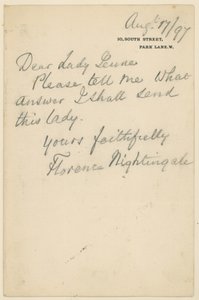 Aug. 17/97
10, SOUTH STREET,
PARK LANE, W.
Dear Lady Jeune
Please tell me what
answer I shall send
this lady.
Yours faithfully
Florence Nightingale